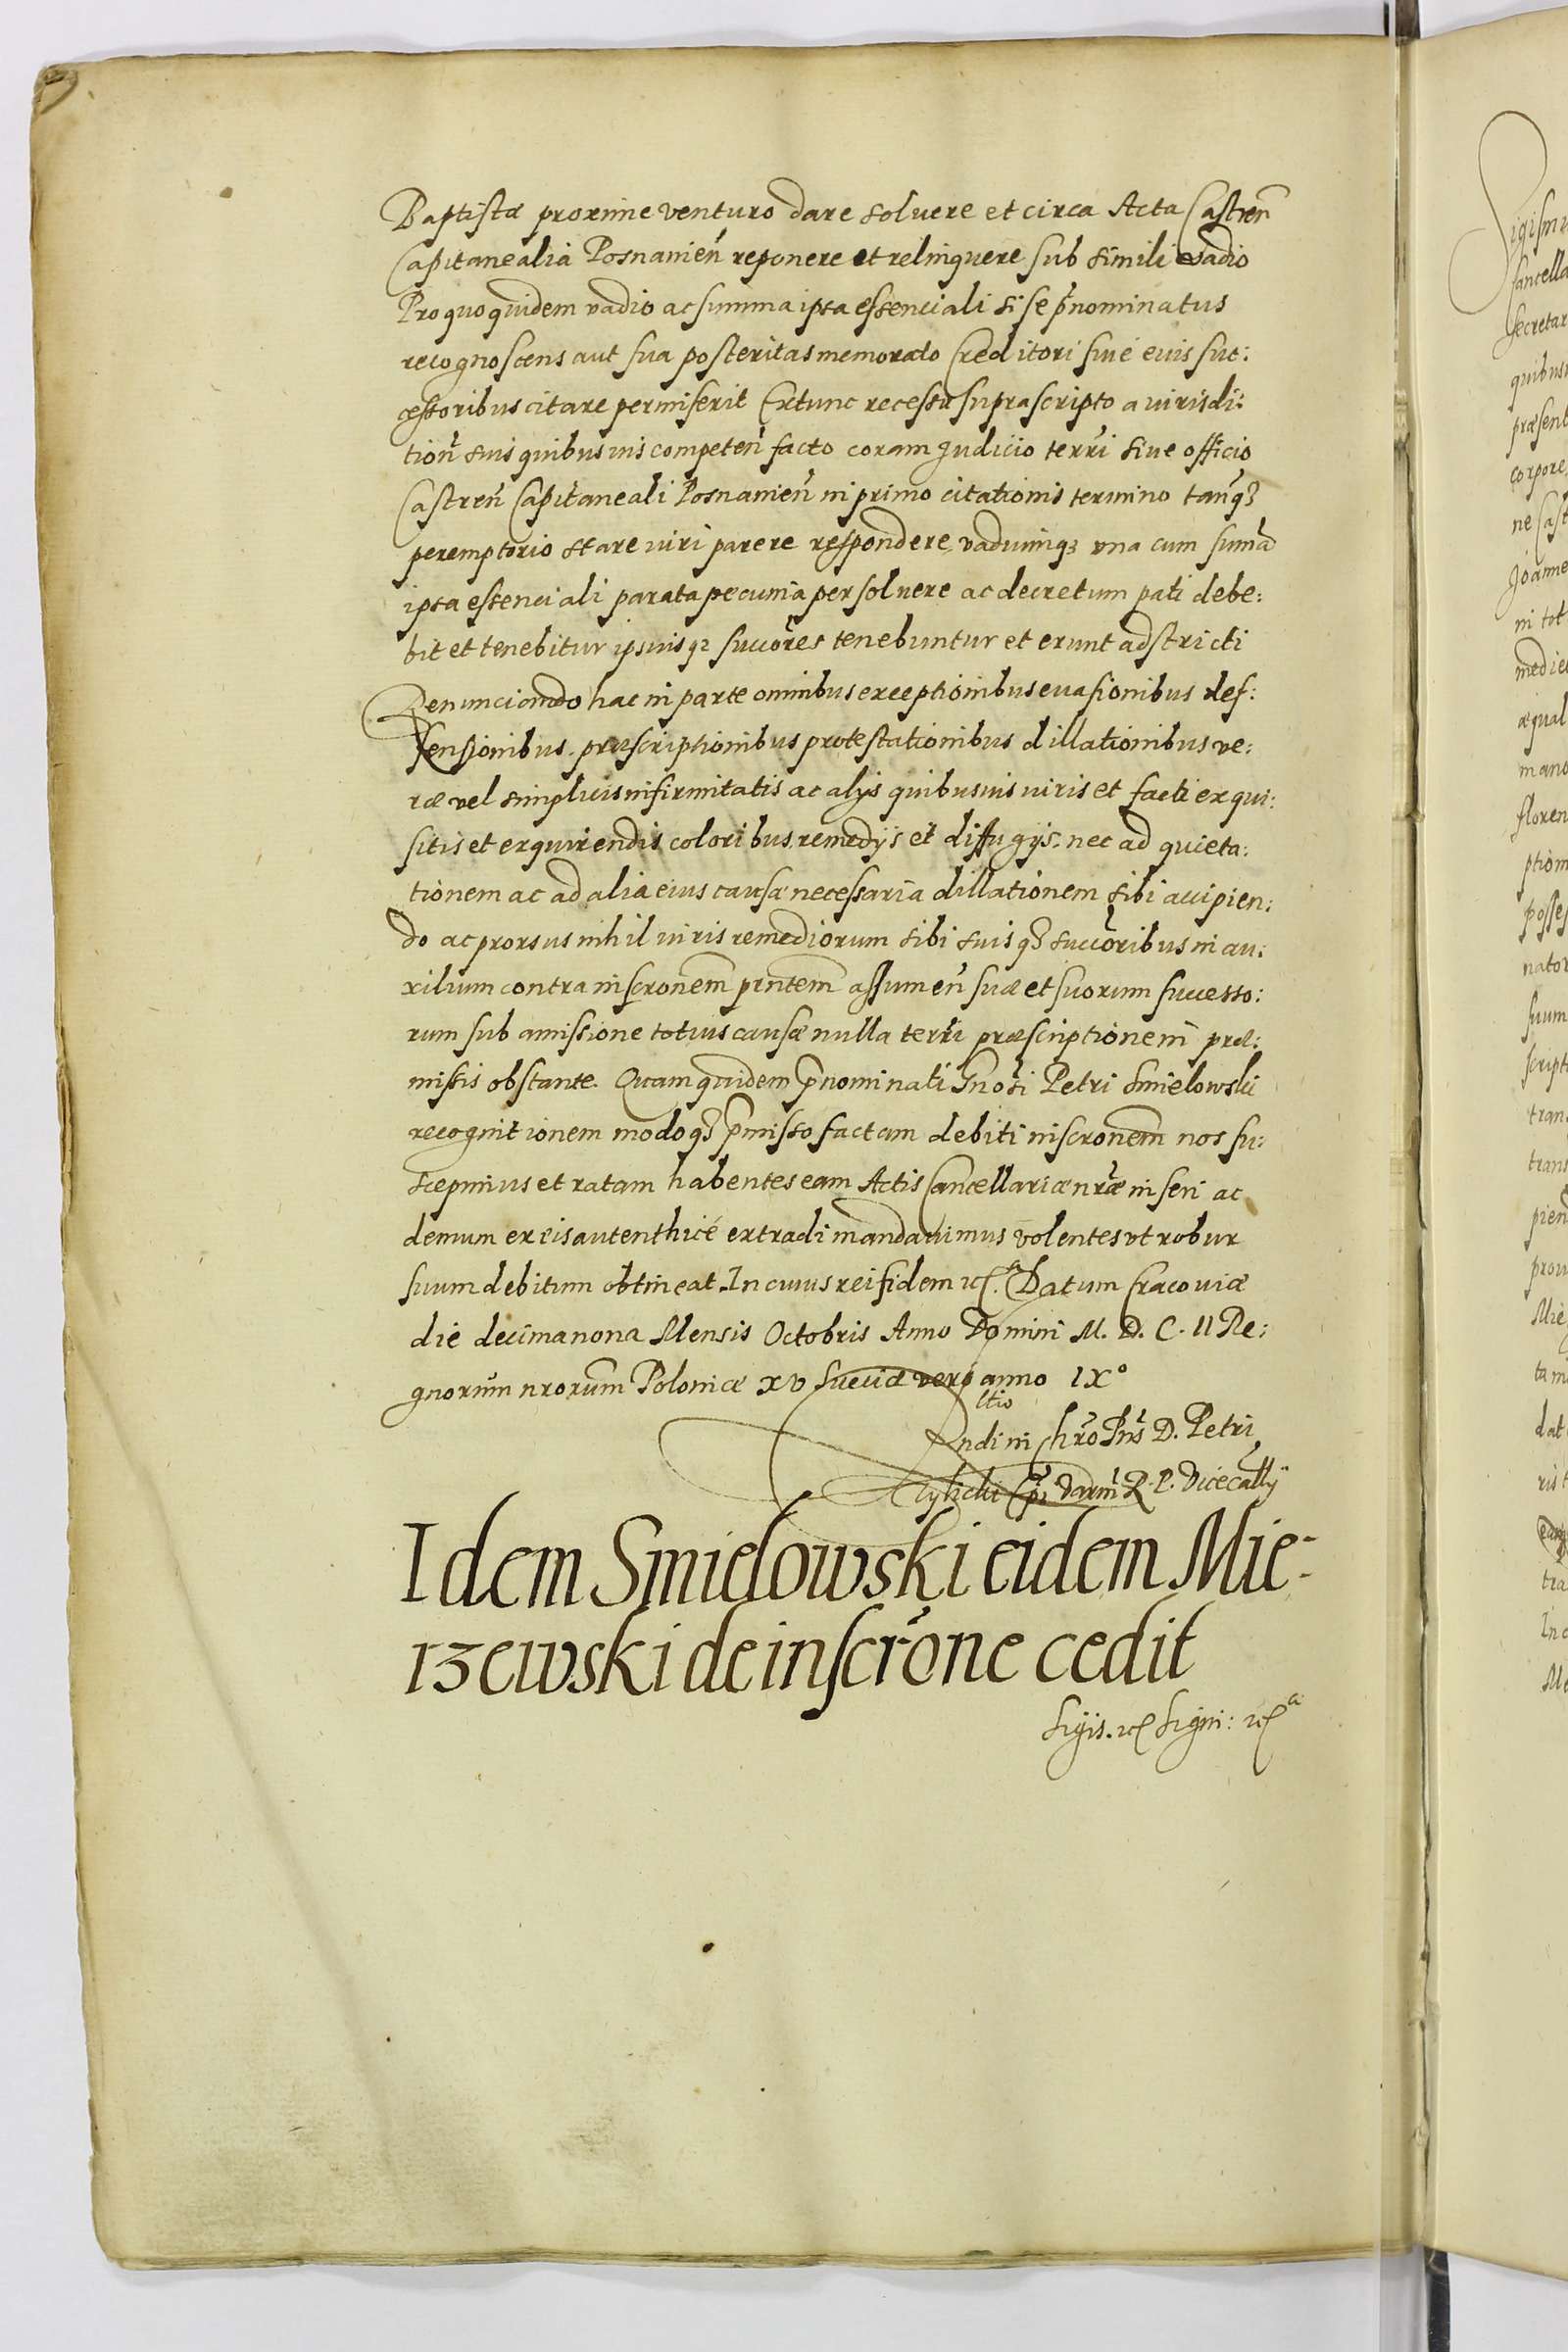 Baptistæ proxime venturo dare soluere et circa Acta Castren̄
Capitanealia Posnanien̄ reponere et relinquere sub simili vadio
Pro quo quidem vadio ac summa ipsa essenciali si se p̄nominatus
recognoscens aut sua posteritas memorato Creditori siue eius suc:
cessoribus citare permiserit Extunc recessu suprascripto a iurisdi:
tion̄ suis quibusuis competen̄ facto coram Judicio terrī siue officio
Castren̄ Capitaneali Posnanien̄ in primo citationis termino tanq̄ȝ
peremptorio stare iuri parere respondere vadiumqȝ vna cum sum̄a
ipsa essenciali parata pecunia persoluere ac decretum pati debe:
bit et tenebitur ipsiusqȝ succōres tenebuntur et erunt adstricti
Renunciando hac in parte omnibus exceptionibus euasionibus def:
fensionibus præscriptionibus protestationibus dillationibus ve:
ræ vel simplicis infirmitatis ac alijs quibusuis iuris et facti exqui:
sitis et exquirendis coloribus remedijs et diffugijs. nec ad quieta:
tionem ac ad alia eius causæ necessaria dillationem sibi accipien:
do ac prorsus nihil iuris remediorum sibi suisqȝ succōribus in au:
xilium contra inscronem̄ prntem̄ assumen̄ suæ et suorum successo:
rum sub amissione totius causæ nulla terrī præscriptione in præ:
missis obstante. Quam quidem p̄nominati Gnosī Petri Smielowski
recognitionem modoqȝ p̄misso factam debiti inscronem̄ nos su:
scepimus et ratam habentes eam Actis Cancellariæ nrǣ inseri ac
demum ex eis autenthicé extradi mandauimus volentes vt robur
suum debitum obtineat. In cuius rei fidem etc. Datum Cracouiæ
die decimanona Mensis Octobris Anno Domini M. D. C. II Re:
gnorum̄ nrorum̄ Poloniæ XV Sueciæ veró anno IX°
ltio
Rndi in Chrō Pris̄ D. Petri
Tylicki Ep̄i Varm̄ R. P. Vicecan̄llij
Idem Smielowski eidem Mie-
rzewski de inscrōne cedit
Sigis. etc Signi: etc a